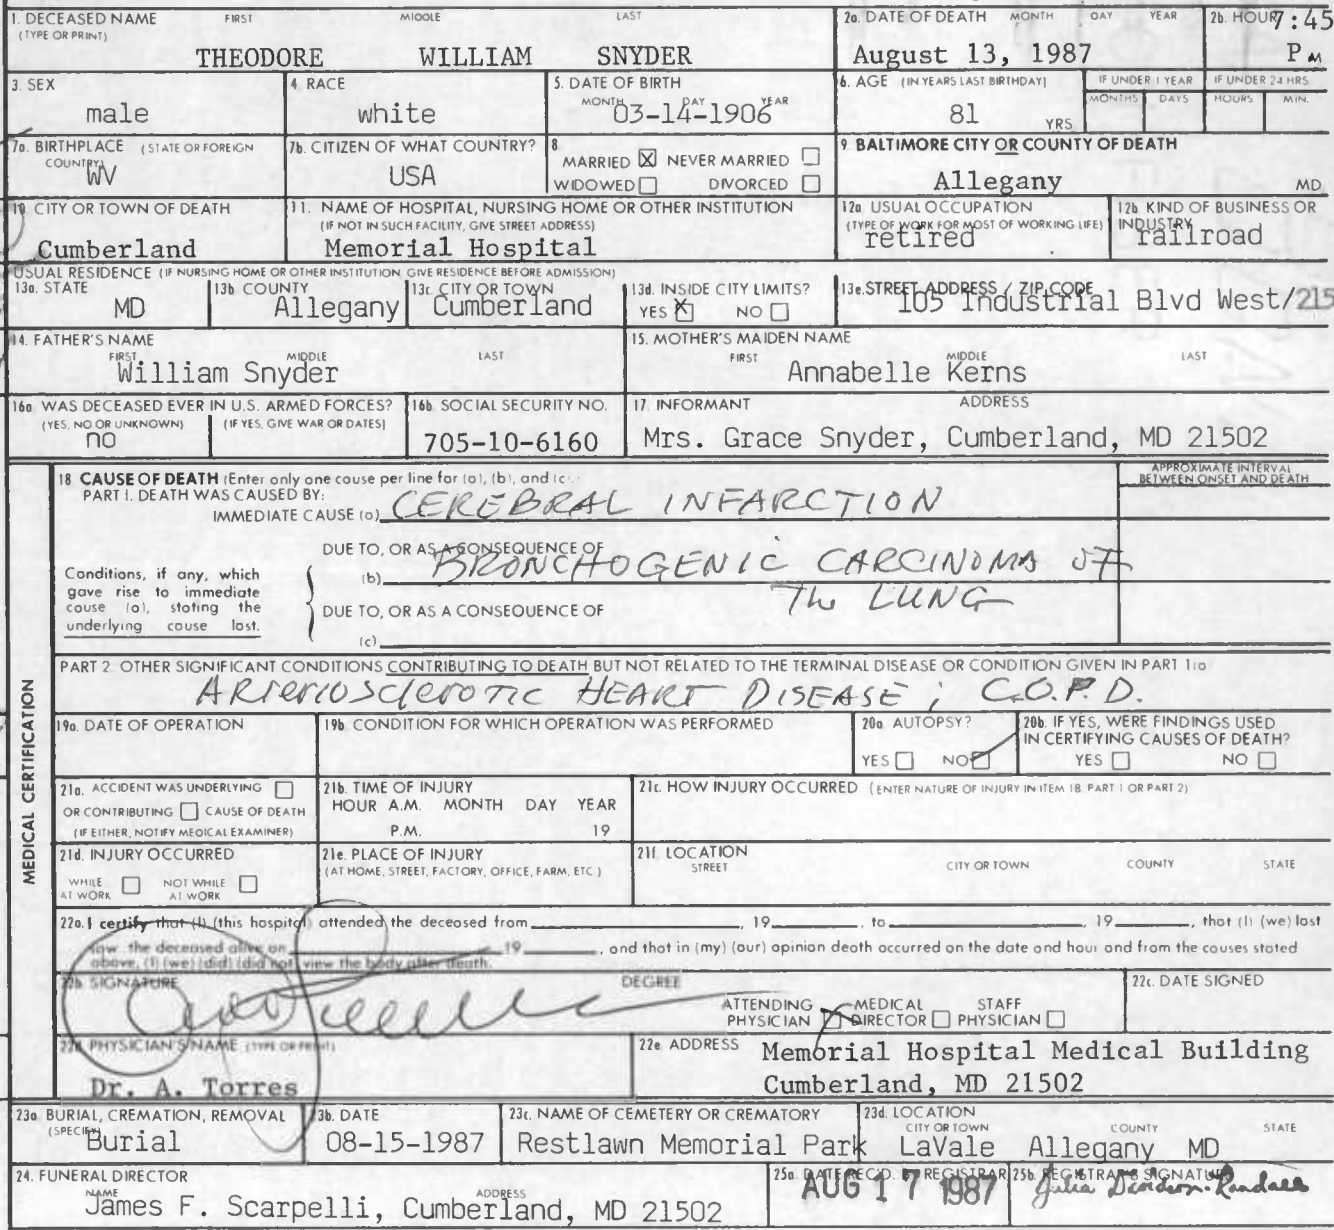 1. DECEASED NAME FIRST MIDDLE LAST
(TYPE OR PRINT)
THEODORE WILLIAM SNYDER
2a. DATE OF DEATH MONTH DAY YEAR
August 13, 1987
2b. HOUR 7:45
P M
3. SEX
male
4. RACE
white
5. DATE OF BIRTH
MONTH DAY YEAR
03-14-1906
6. AGE (IN YEARS LAST BIRTHDAY)
81 YRS
IF UNDER 1 YEAR
MONTHS DAYS
IF UNDER 24 HRS
HOURS MIN.
7a. BIRTHPLACE (STATE OR FOREIGN
COUNTRY)
WV
7b. CITIZEN OF WHAT COUNTRY?
USA
8
MARRIED X NEVER MARRIED
WIDOWED DIVORCED
9 BALTIMORE CITY OR COUNTY OF DEATH
Allegany MD
10 CITY OR TOWN OF DEATH
Cumberland
11. NAME OF HOSPITAL, NURSING HOME OR OTHER INSTITUTION
(IF NOT IN SUCH FACILITY, GIVE STREET ADDRESS)
Memorial Hospital
12a USUAL OCCUPATION
(TYPE OF WORK FOR MOST OF WORKING LIFE)
retired
12b KIND OF BUSINESS OR
INDUSTRY
railroad
USUAL RESIDENCE (IF NURSING HOME OR OTHER INSTITUTION GIVE RESIDENCE BEFORE ADMISSION)
13a. STATE
MD
13b COUNTY
Allegany
13c. CITY OR TOWN
Cumberland
13d. INSIDE CITY LIMITS?
YES X NO
13e. STREET ADDRESS / ZIP CODE
105 Industrial Blvd West/215
14. FATHER'S NAME
FIRST MIDDLE LAST
William Snyder
15. MOTHER'S MAIDEN NAME
FIRST MIDDLE LAST
Annabelle Kerns
16a WAS DECEASED EVER IN U.S. ARMED FORCES?
(YES, NO OR UNKNOWN) (IF YES, GIVE WAR OR DATES)
no
16b. SOCIAL SECURITY NO.
705-10-6160
17. INFORMANT ADDRESS
Mrs. Grace Snyder, Cumberland, MD 21502
MEDICAL CERTIFICATION
18 CAUSE OF DEATH (Enter only one cause per line for (a), (b), and (c).
PART I. DEATH WAS CAUSED BY:
IMMEDIATE CAUSE (a) CEREBRAL INFARCTION
APPROXIMATE INTERVAL
BETWEEN ONSET AND DEATH
DUE TO, OR AS A CONSEQUENCE OF
(b) BRONCHOGENIC CARCINOMA OF
The LUNG
Conditions, if any, which
gave rise to immediate
cause (a), stating the
underlying cause last.
DUE TO, OR AS A CONSEQUENCE OF
(c)
PART 2 OTHER SIGNIFICANT CONDITIONS CONTRIBUTING TO DEATH BUT NOT RELATED TO THE TERMINAL DISEASE OR CONDITION GIVEN IN PART 1(a)
ARTERIOSCLEROTIC HEART DISEASE; C.O.P.D.
19a. DATE OF OPERATION
19b. CONDITION FOR WHICH OPERATION WAS PERFORMED
20a AUTOPSY?
YES NO
20b. IF YES, WERE FINDINGS USED
IN CERTIFYING CAUSES OF DEATH?
YES NO
21a. ACCIDENT WAS UNDERLYING
OR CONTRIBUTING CAUSE OF DEATH
(IF EITHER, NOTIFY MEDICAL EXAMINER)
21b. TIME OF INJURY
HOUR A.M. MONTH DAY YEAR
P.M. 19
21c. HOW INJURY OCCURRED (ENTER NATURE OF INJURY IN ITEM 18, PART 1 OR PART 2)
21d. INJURY OCCURRED
WHILE AT WORK NOT WHILE AT WORK
21e. PLACE OF INJURY
(AT HOME, STREET, FACTORY, OFFICE, FARM, ETC)
21f. LOCATION
STREET CITY OR TOWN COUNTY STATE
22a. I certify that (I) (this hospital) attended the deceased from , 19 , to 19 , that (I) (we) last
saw the deceased alive on 19 , and that in (my) (our) opinion death occurred on the date and hour and from the causes stated
above, (I) (we) (did) (did not) view the body after death.
22b SIGNATURE DEGREE
ATTENDING PHYSICIAN MEDICAL DIRECTOR STAFF PHYSICIAN
22c. DATE SIGNED
22d PHYSICIAN'S NAME (TYPE OR PRINT)
Dr. A. Torres
22e. ADDRESS Memorial Hospital Medical Building
Cumberland, MD 21502
23a BURIAL, CREMATION, REMOVAL
(SPECIFY)
Burial
23b. DATE
08-15-1987
23c. NAME OF CEMETERY OR CREMATORY
Restlawn Memorial Park
23d. LOCATION
CITY OR TOWN COUNTY STATE
LaVale Allegany MD
24. FUNERAL DIRECTOR
NAME ADDRESS
James F. Scarpelli, Cumberland, MD 21502
25a DATE REC'D. BY REGISTRAR
AUG 17 1987
25b. REGISTRAR'S SIGNATURE
Julia Davidson-Randall